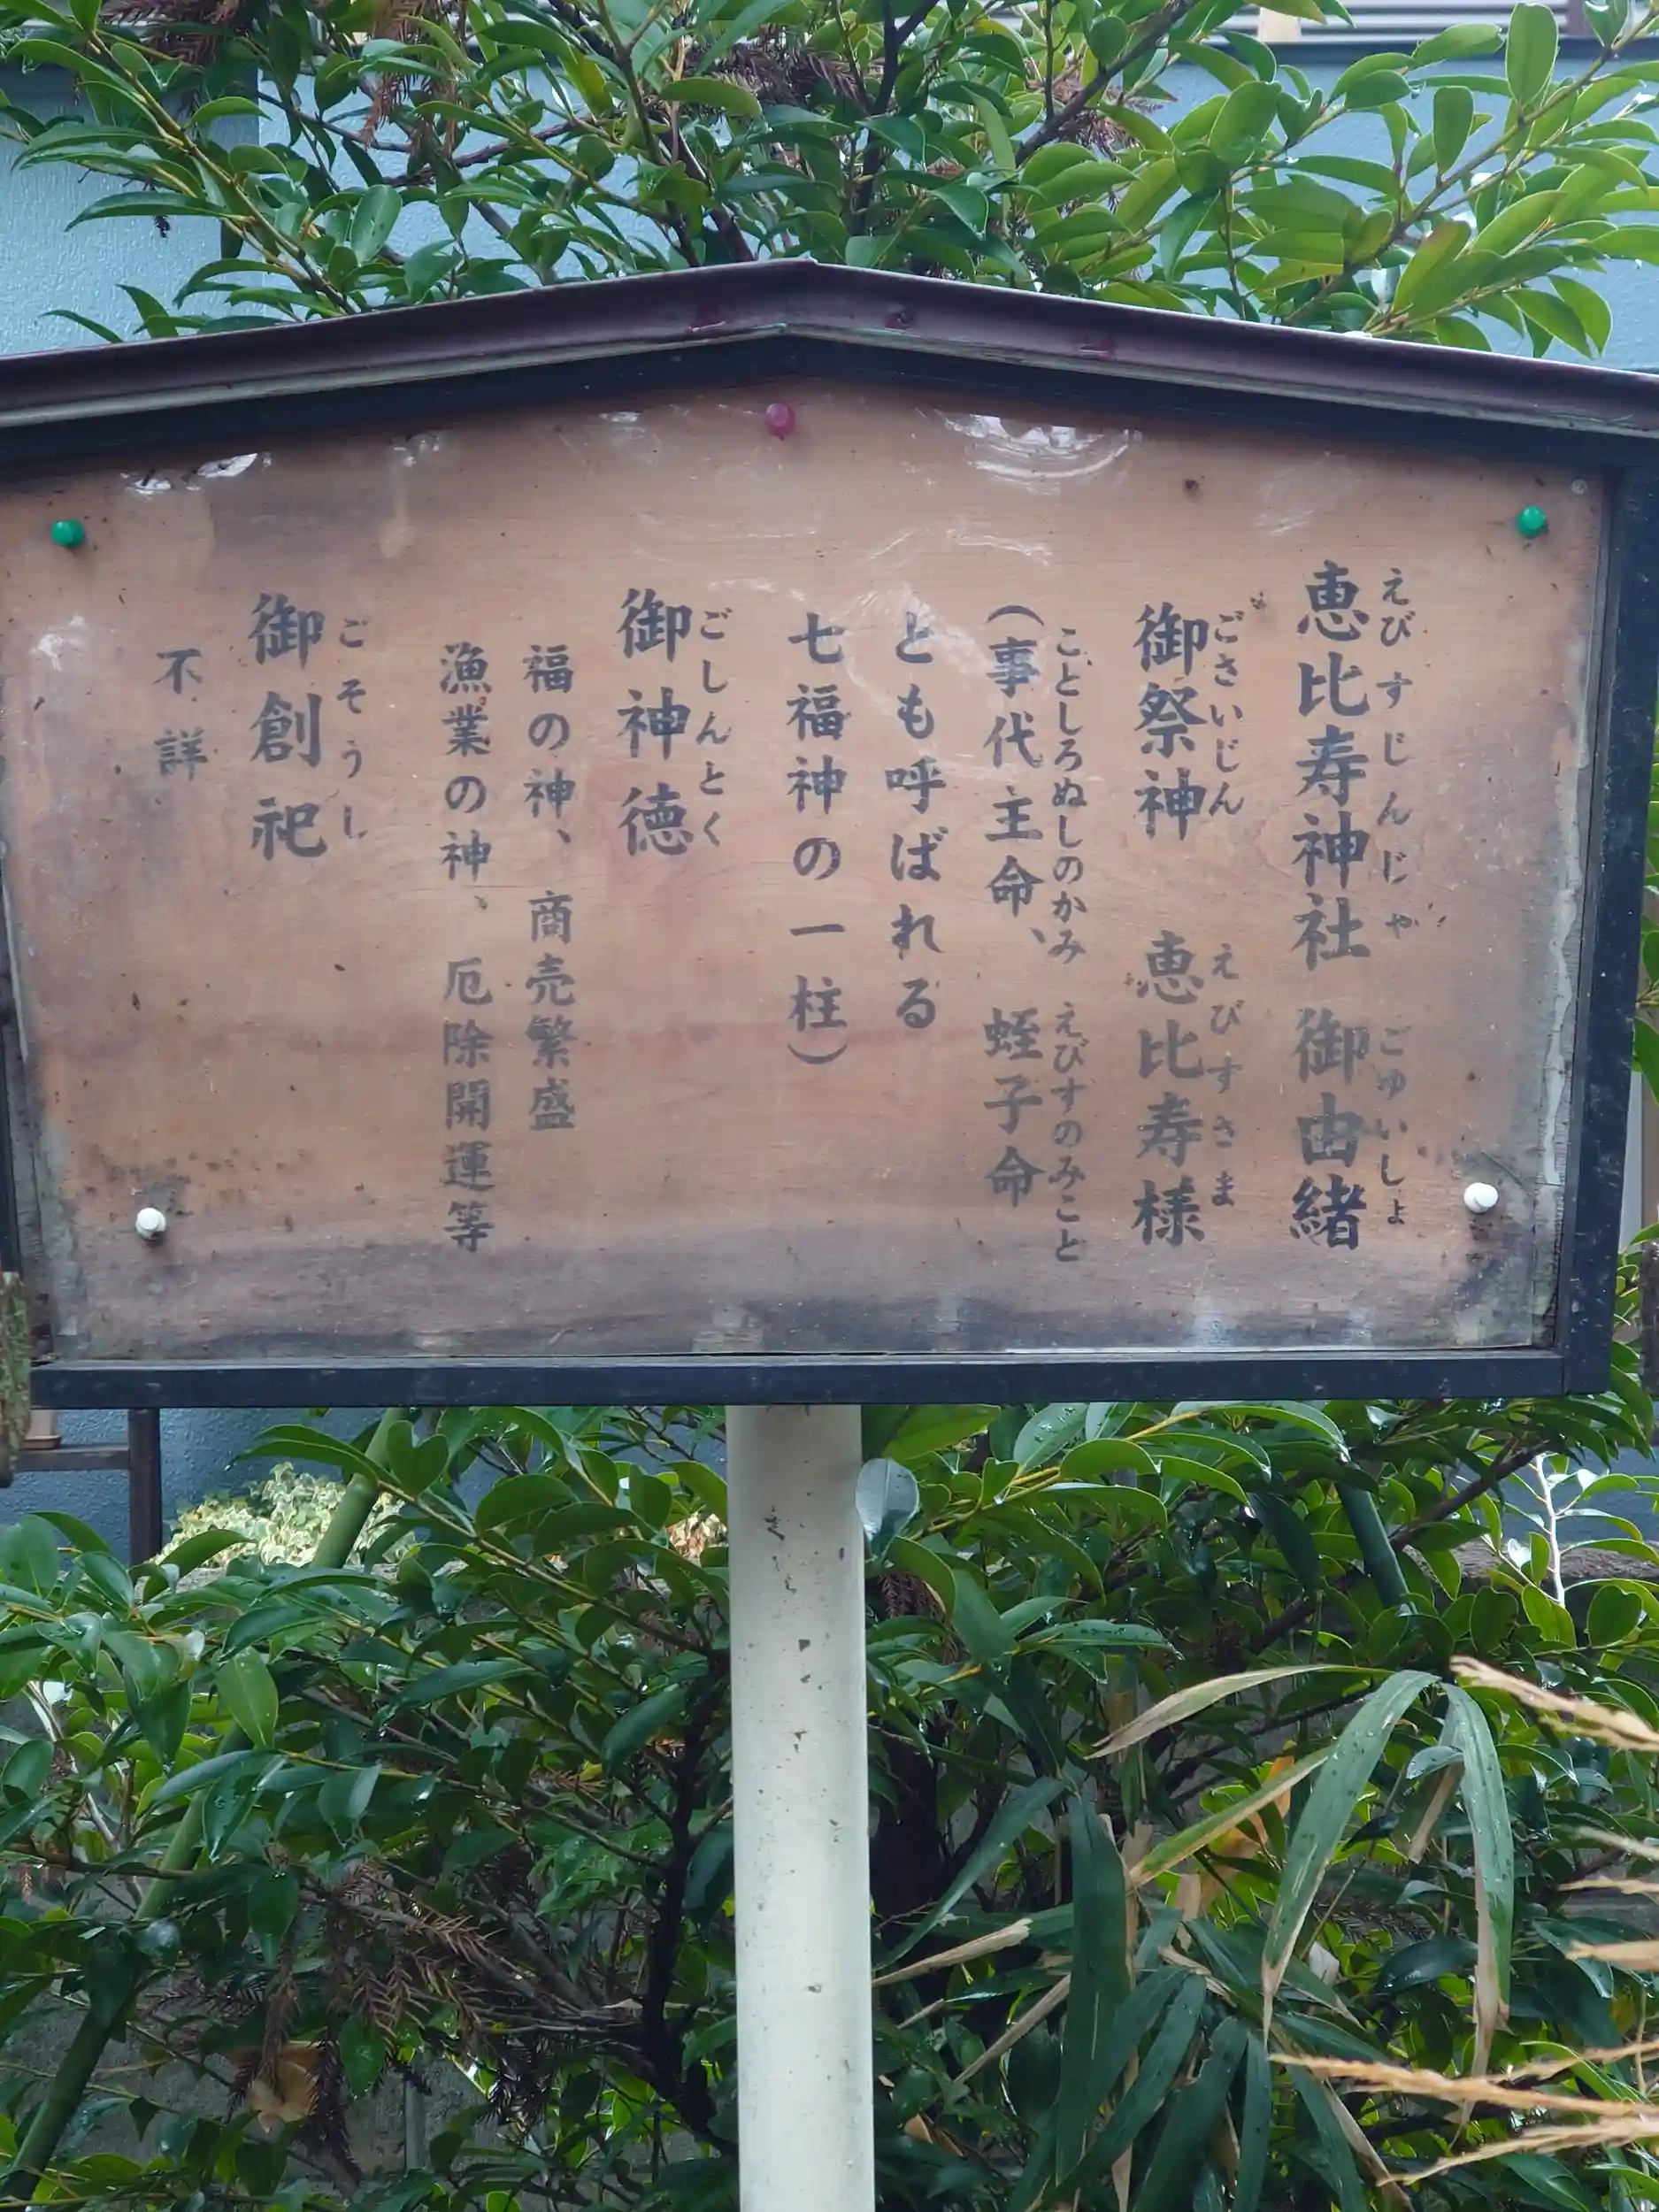 恵比寿神社 御由緒
えびすじんじゃ ごゆいしょ
御祭神 恵比寿様
ごさいじん えびすさま
(事代主命、蛭子命
ことしろぬしのかみ えびすのみこと
とも呼ばれる
七福神の一柱)
御神徳
ごしんとく
福の神、商売繁盛
漁業の神、厄除開運等
御創祀
ごそうし
不詳